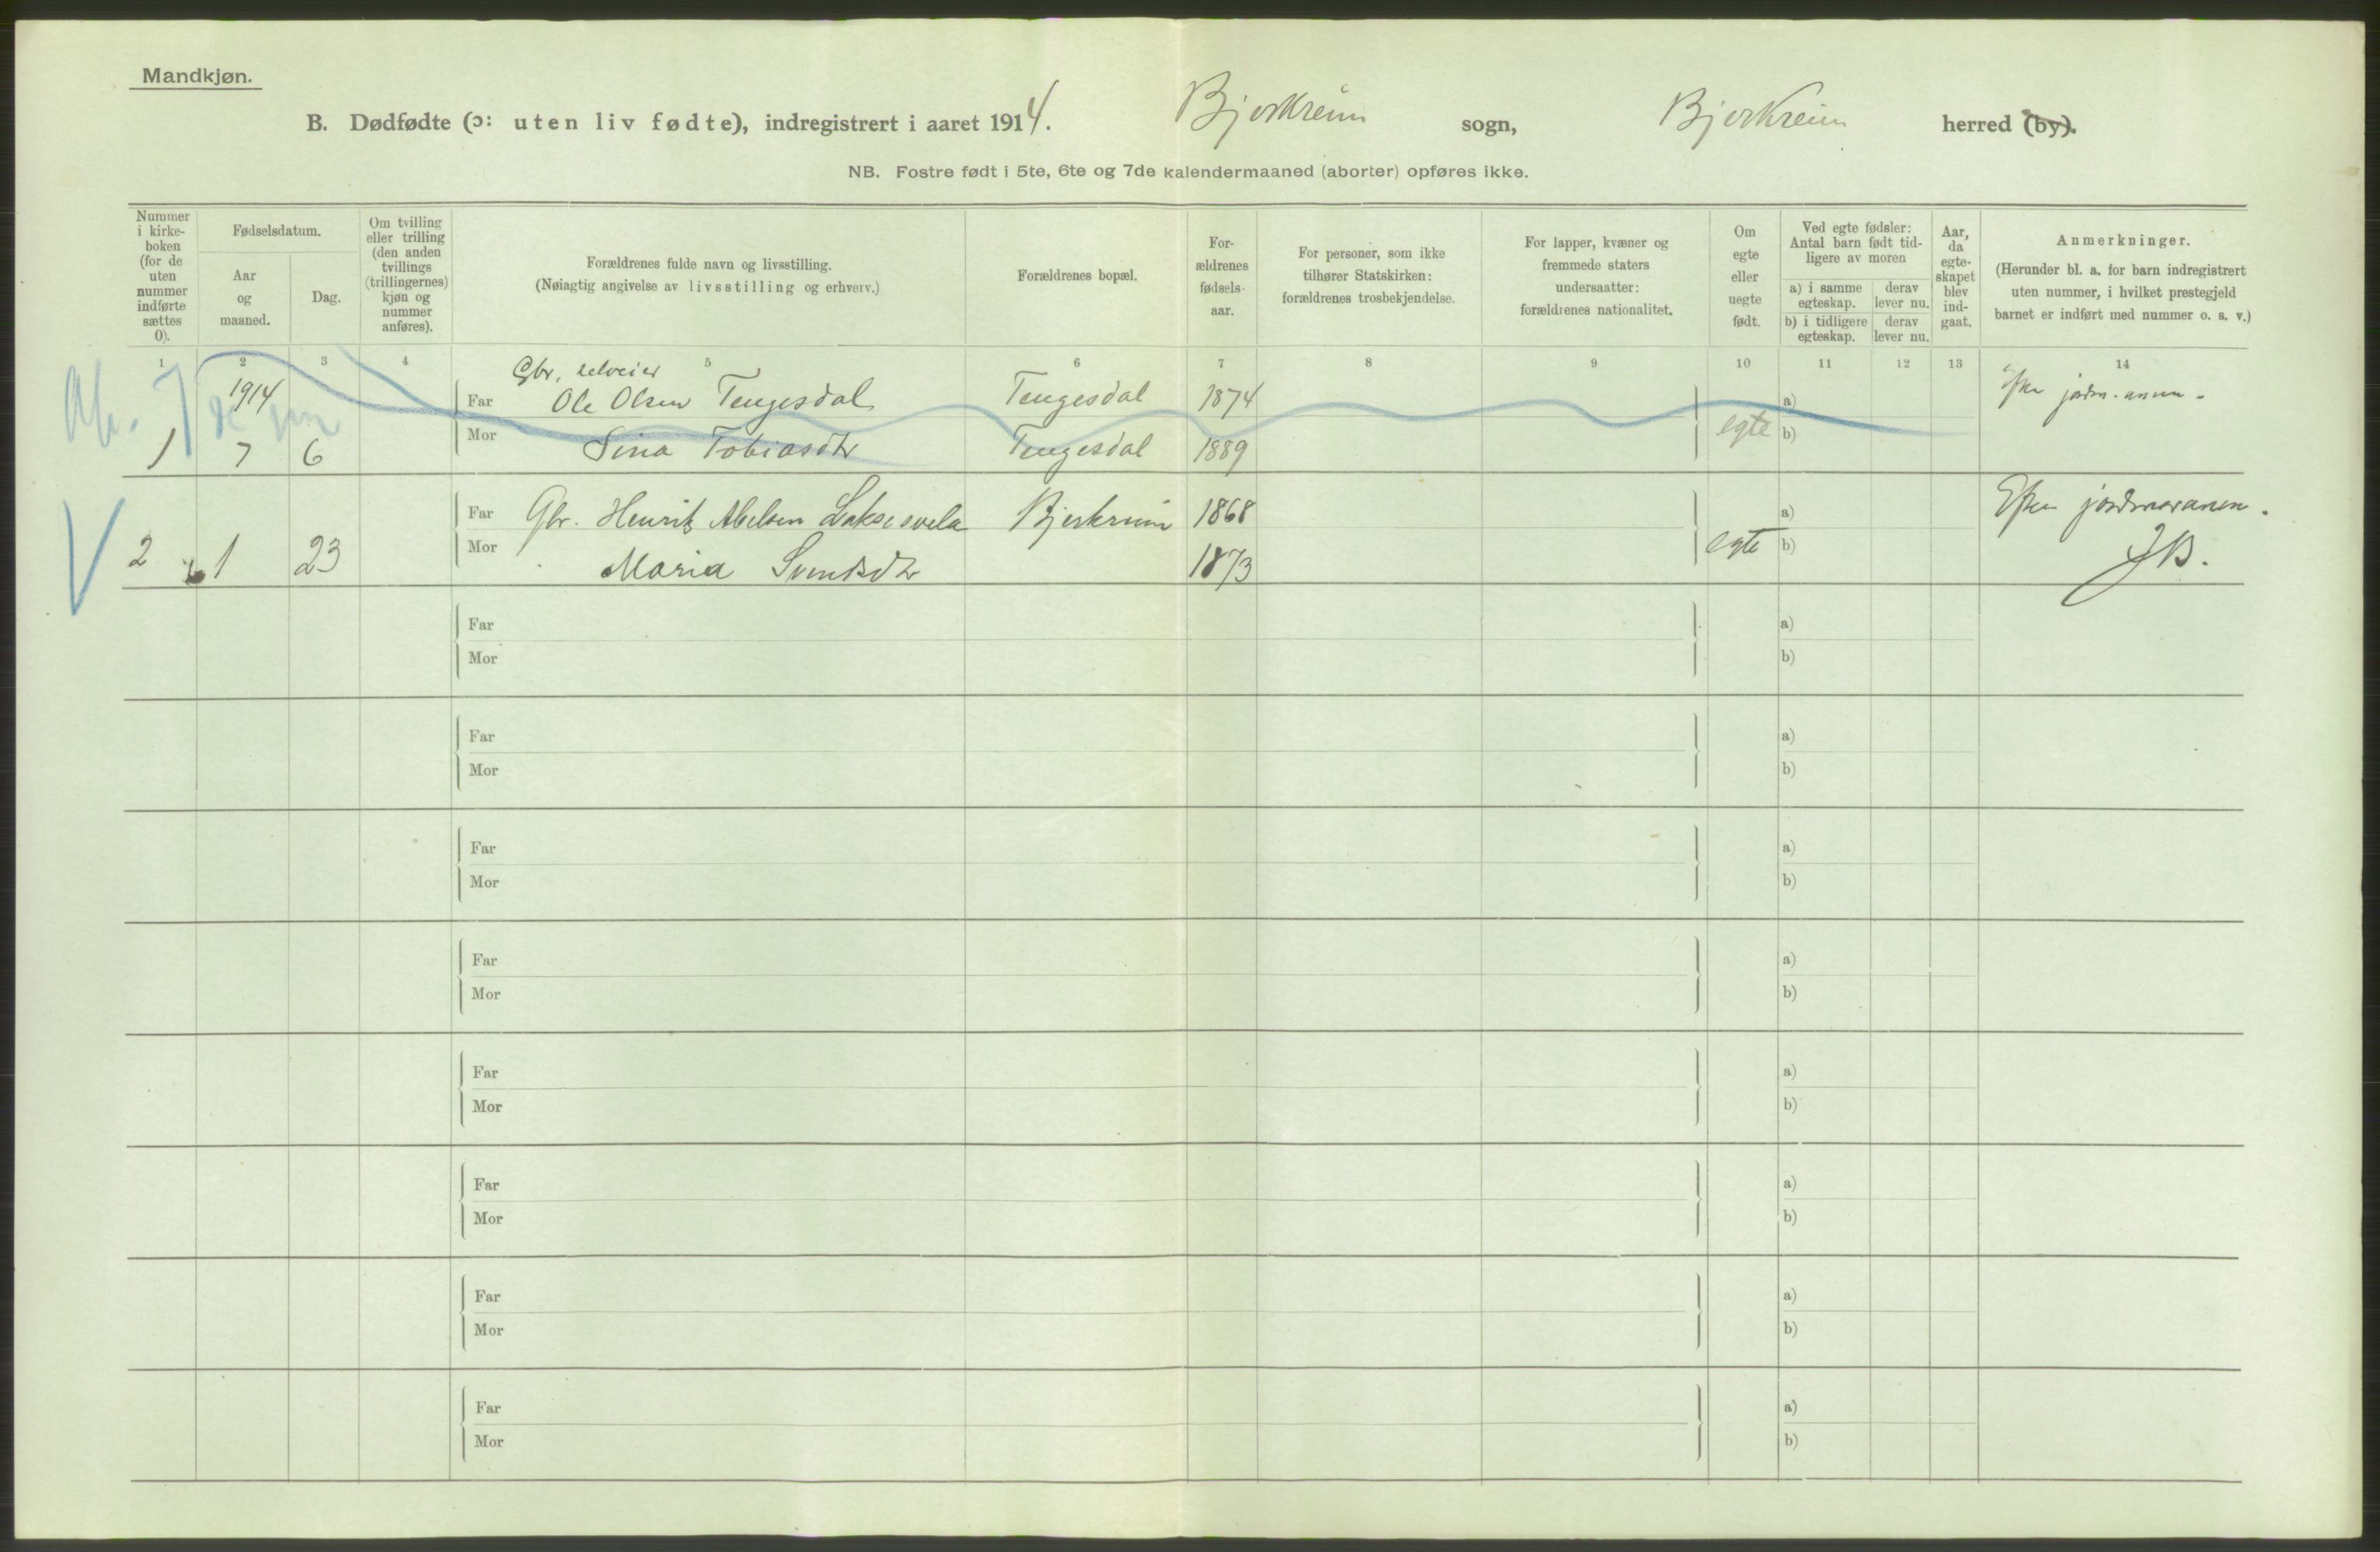 Mandkjøn.
B. Dødfødte (ɔ: uten liv fødte), indregistrert i aaret 1914. Bjerkreim sogn, Bjerkreim herred (by).
NB. Fostre født i 5te, 6te og 7de kalendermaaned (aborter) opføres ikke.
Nummer
i kirke-
boken
(for de
uten
nummer
indførte
sættes
0).
Fødselsdatum.
Aar
og
maaned.
Dag.
Om tvilling
eller trilling
(den anden
tvillings
(trillingernes)
kjøn og
nummer
anføres).
Forældrenes fulde navn og livsstilling.
(Nøiagtig angivelse av livsstilling og erhverv.)
Forældrenes bopæl.
For-
ældrenes
fødsels-
aar.
For personer, som ikke
tilhører Statskirken:
forældrenes trosbekjendelse.
For lapper, kvæner og
fremmede staters
undersaatter:
forældrenes nationalitet.
Om
egte
eller
uegte
født.
Ved egte fødsler:
Antal barn født tid-
ligere av moren
a) i samme
egteskap.
derav
lever nu.
b) i tidligere
egteskap.
derav
lever nu.
Aar,
da
egte-
skapet
blev
ind-
gaat.
Anmerkninger.
(Herunder bl. a. for barn indregistrert
uten nummer, i hvilket prestegjeld
barnet er indført med nummer o. s. v.)
1 2 3 4 5 6 7 8 9 10 11 12 13 14
Gbr, selveier
1914 Far Ole Olsen Tengesdal Tengesdal 1874 a) jordm. anm.
1 7 6 Mor Sina Tobiasdtr Tengesdal 1889 egte b)
Far Gbr. Henrik Abelsen Laksesvela Bjerkreim 1868 a) Efter jordmoranm.
2 1 23 Mor Maria 1873 egte b) JB.
Far a)
Mor b)
Far a)
Mor b)
Far a)
Mor b)
Far a)
Mor b)
Far a)
Mor b)
Far a)
Mor b)
Far a)
Mor b)
Far a)
Mor b)